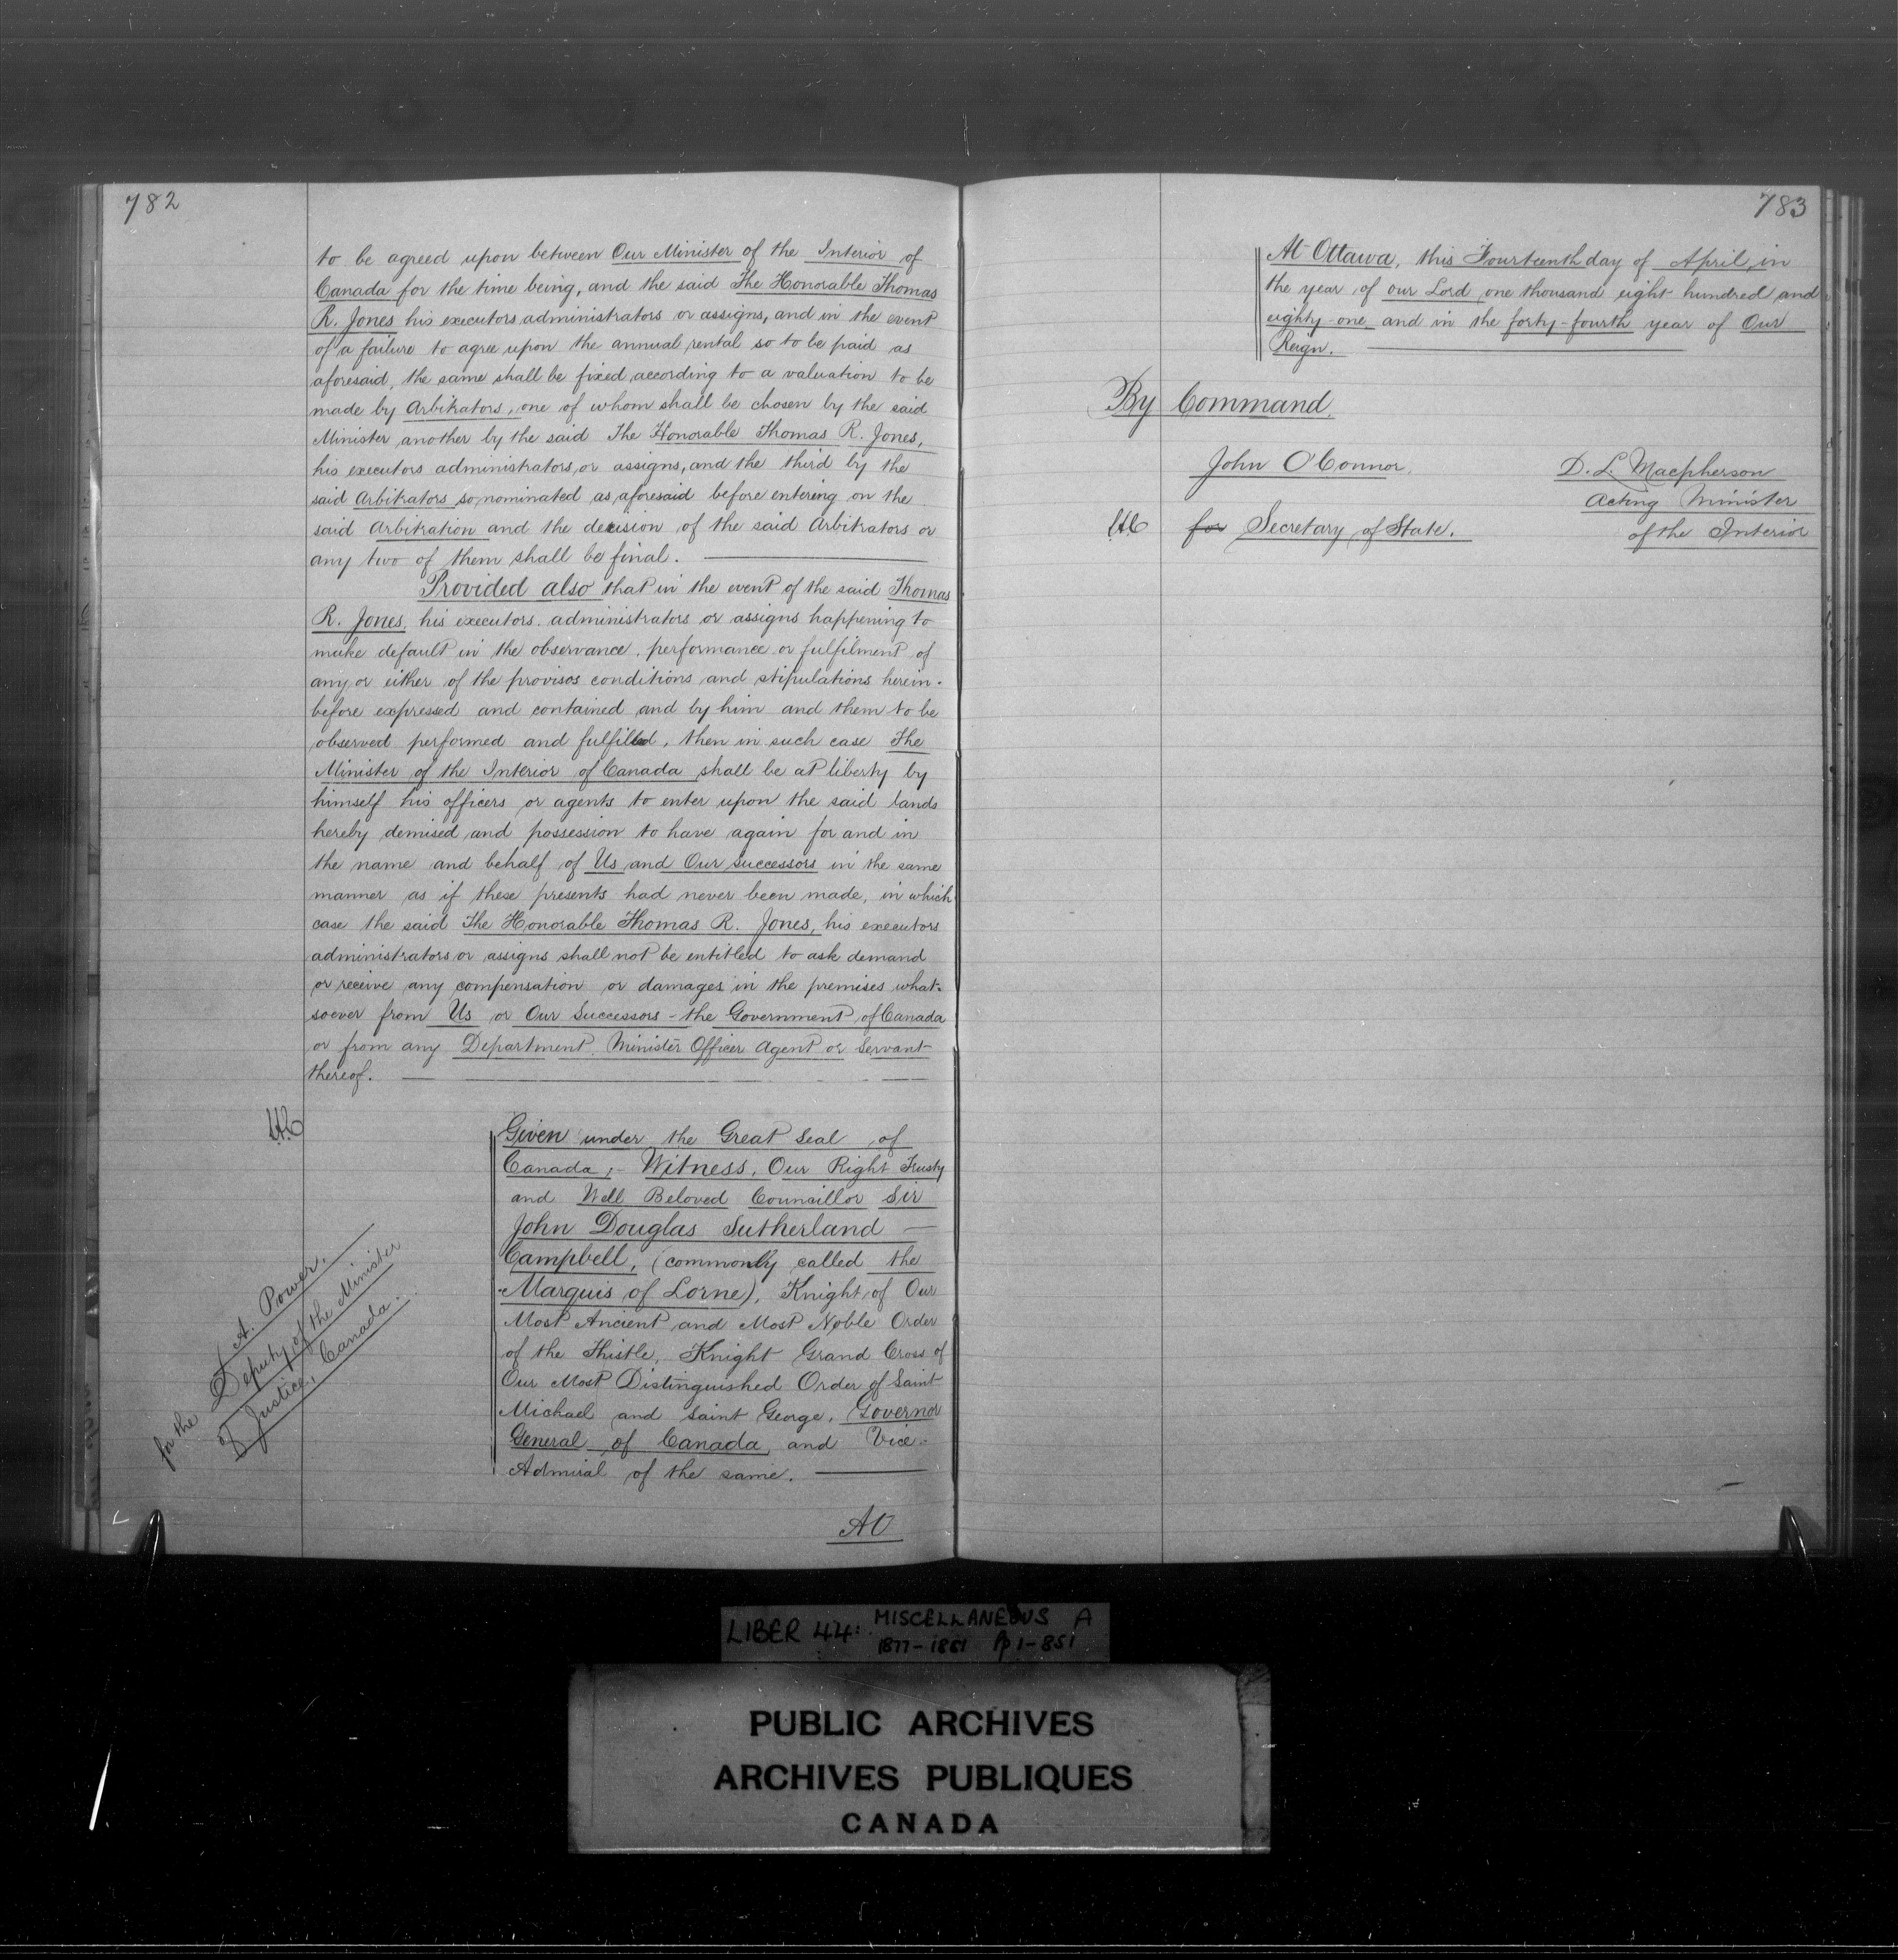 782
to be agreed upon between Our Minister of the Interior of
Canada for the time being, and the said The Honorable Thomas
R. Jones his executors administrators or assigns, and in the event
of a failure to agree upon the annual rental so to be paid as
aforesaid, the same shall be fixed according to a valuation to be
made by Arbitrators, one of whom shall be chosen by the said
Minister another by the said The Honorable Thomas R. Jones,
his executors administrators, or assigns, and the third by the
said Arbitrators so nominated as aforesaid before entering on the
said Arbitration and the decision of the said Arbitrators or
any two of them shall be final.
Provided also that in the event of the said Thomas
R. Jones, his executors. administrators or assigns happening to
make default in the observance, performance or fulfilment of
any or either of the provisos conditions and stipulations herein-
before expressed and contained and by him and them to be
observed performed and fulfilled, then in such case The
Minister of the Interior of Canada shall be at liberty by
himself his officers or agents to enter upon the said lands
hereby demised and possession to have again for and in
the name and behalf of Us and Our Successors in the same
manner as if these presents had never been made, in which
case the said The Honorable Thomas R. Jones, his executors
administrators or assigns shall not be entitled to ask demand
or receive any compensation or damages in the premises what-
soever from Us or Our Successors - the Government of Canada
or from any Department, Minister Officer Agent or Servant
thereof.
Given under the Great Seal of
Canada;- Witness, Our Right Trusty
and Well Beloved Councillor Sir
John Douglas Sutherland
Campbell, (commonly called the
Marquis of Lorne), Knight of Our
Most Ancient and Most Noble Order
of the Thistle, Knight Grand Cross of
Our Most Distinguished Order of Saint
Michael and Saint George, Governor
General of Canada, and Vice-
Admiral of the same.
At
A. Power.
for the Deputy of the Minister
of Justice, Canada.
783
At Ottawa, this Fourteenth day of April, in
the year of our Lord one thousand eight hundred and
eighty-one and in the forty-fourth year of Our
Reign.
By Command.
John O'Connor.
for Secretary of State.
D. L. Macpherson
Acting Minister
of the Interior
LIBER 44: MISCELLANEOUS A
1877-1881 Pp 1-851
PUBLIC ARCHIVES
ARCHIVES PUBLIQUES
CANADA